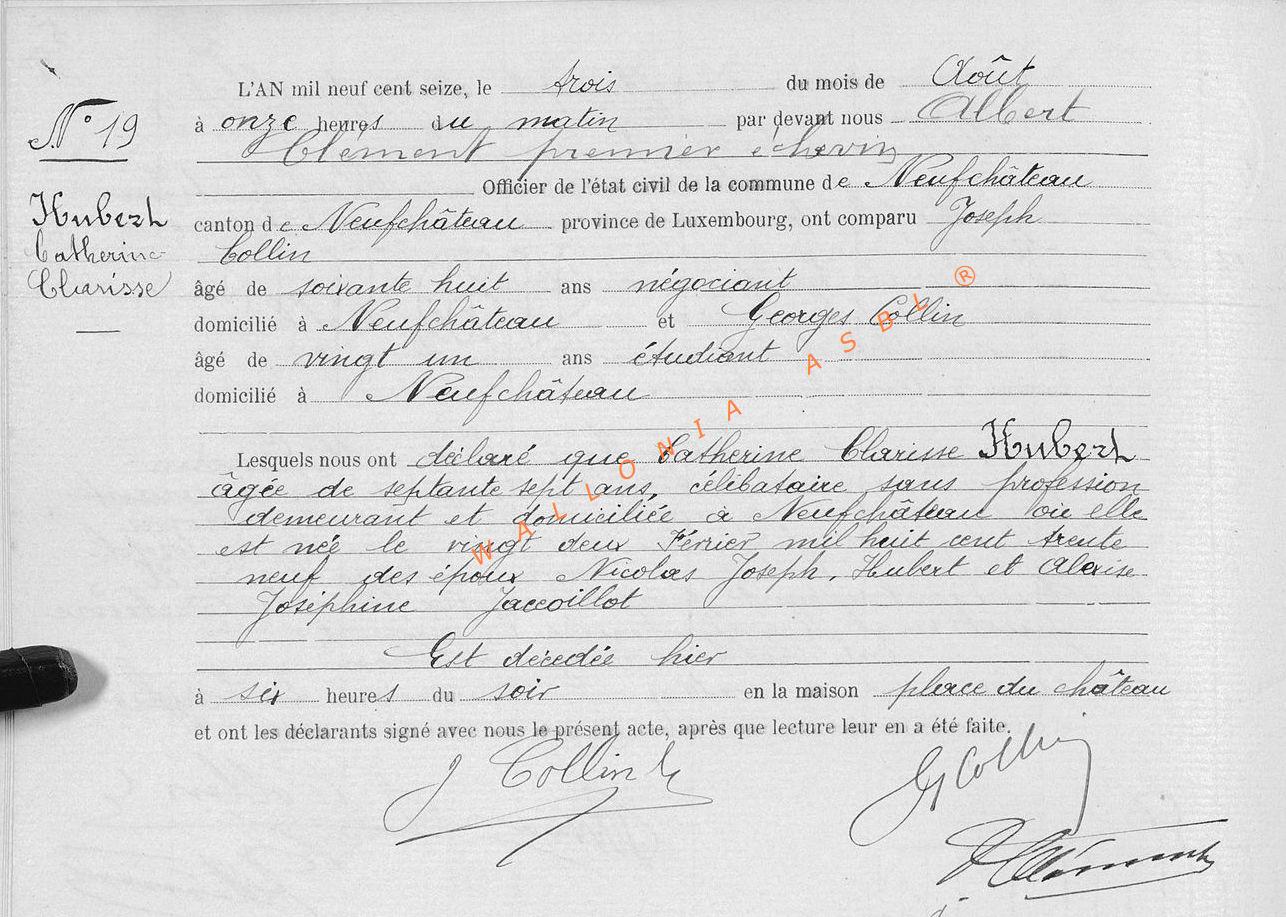 L'AN mil neuf cent seize, le trois du mois de Août
N° 19
à onze heures du matin par devant nous Albert
Clément premier échevin
Officier de l'état civil de la commune de Neufchâteau
Hubert
Catherine
Clarisse
canton de Neufchâteau province de Luxembourg, ont comparu Joseph
Collin
âgé de soixante huit ans négociant
domicilié à Neufchâteau et Georges Collin
âgé de vingt un ans étudiant
domicilié à Neufchâteau
Lesquels nous ont déclaré que Catherine Clarisse Hubert
âgée de septante sept ans, célibataire sans profession
demeurant et domiciliée à Neufchâteau où elle
est née le vingt deux Février mil huit cent trente
neuf des époux Nicolas Joseph Hubert et
Joséphine
Est décédée hier
à six heures du soir en la maison place du château
et ont les déclarants signé avec nous le présent acte, après que lecture leur en a été faite.
J Collin
G Collin
Clément
WALLONIA ASBL ®